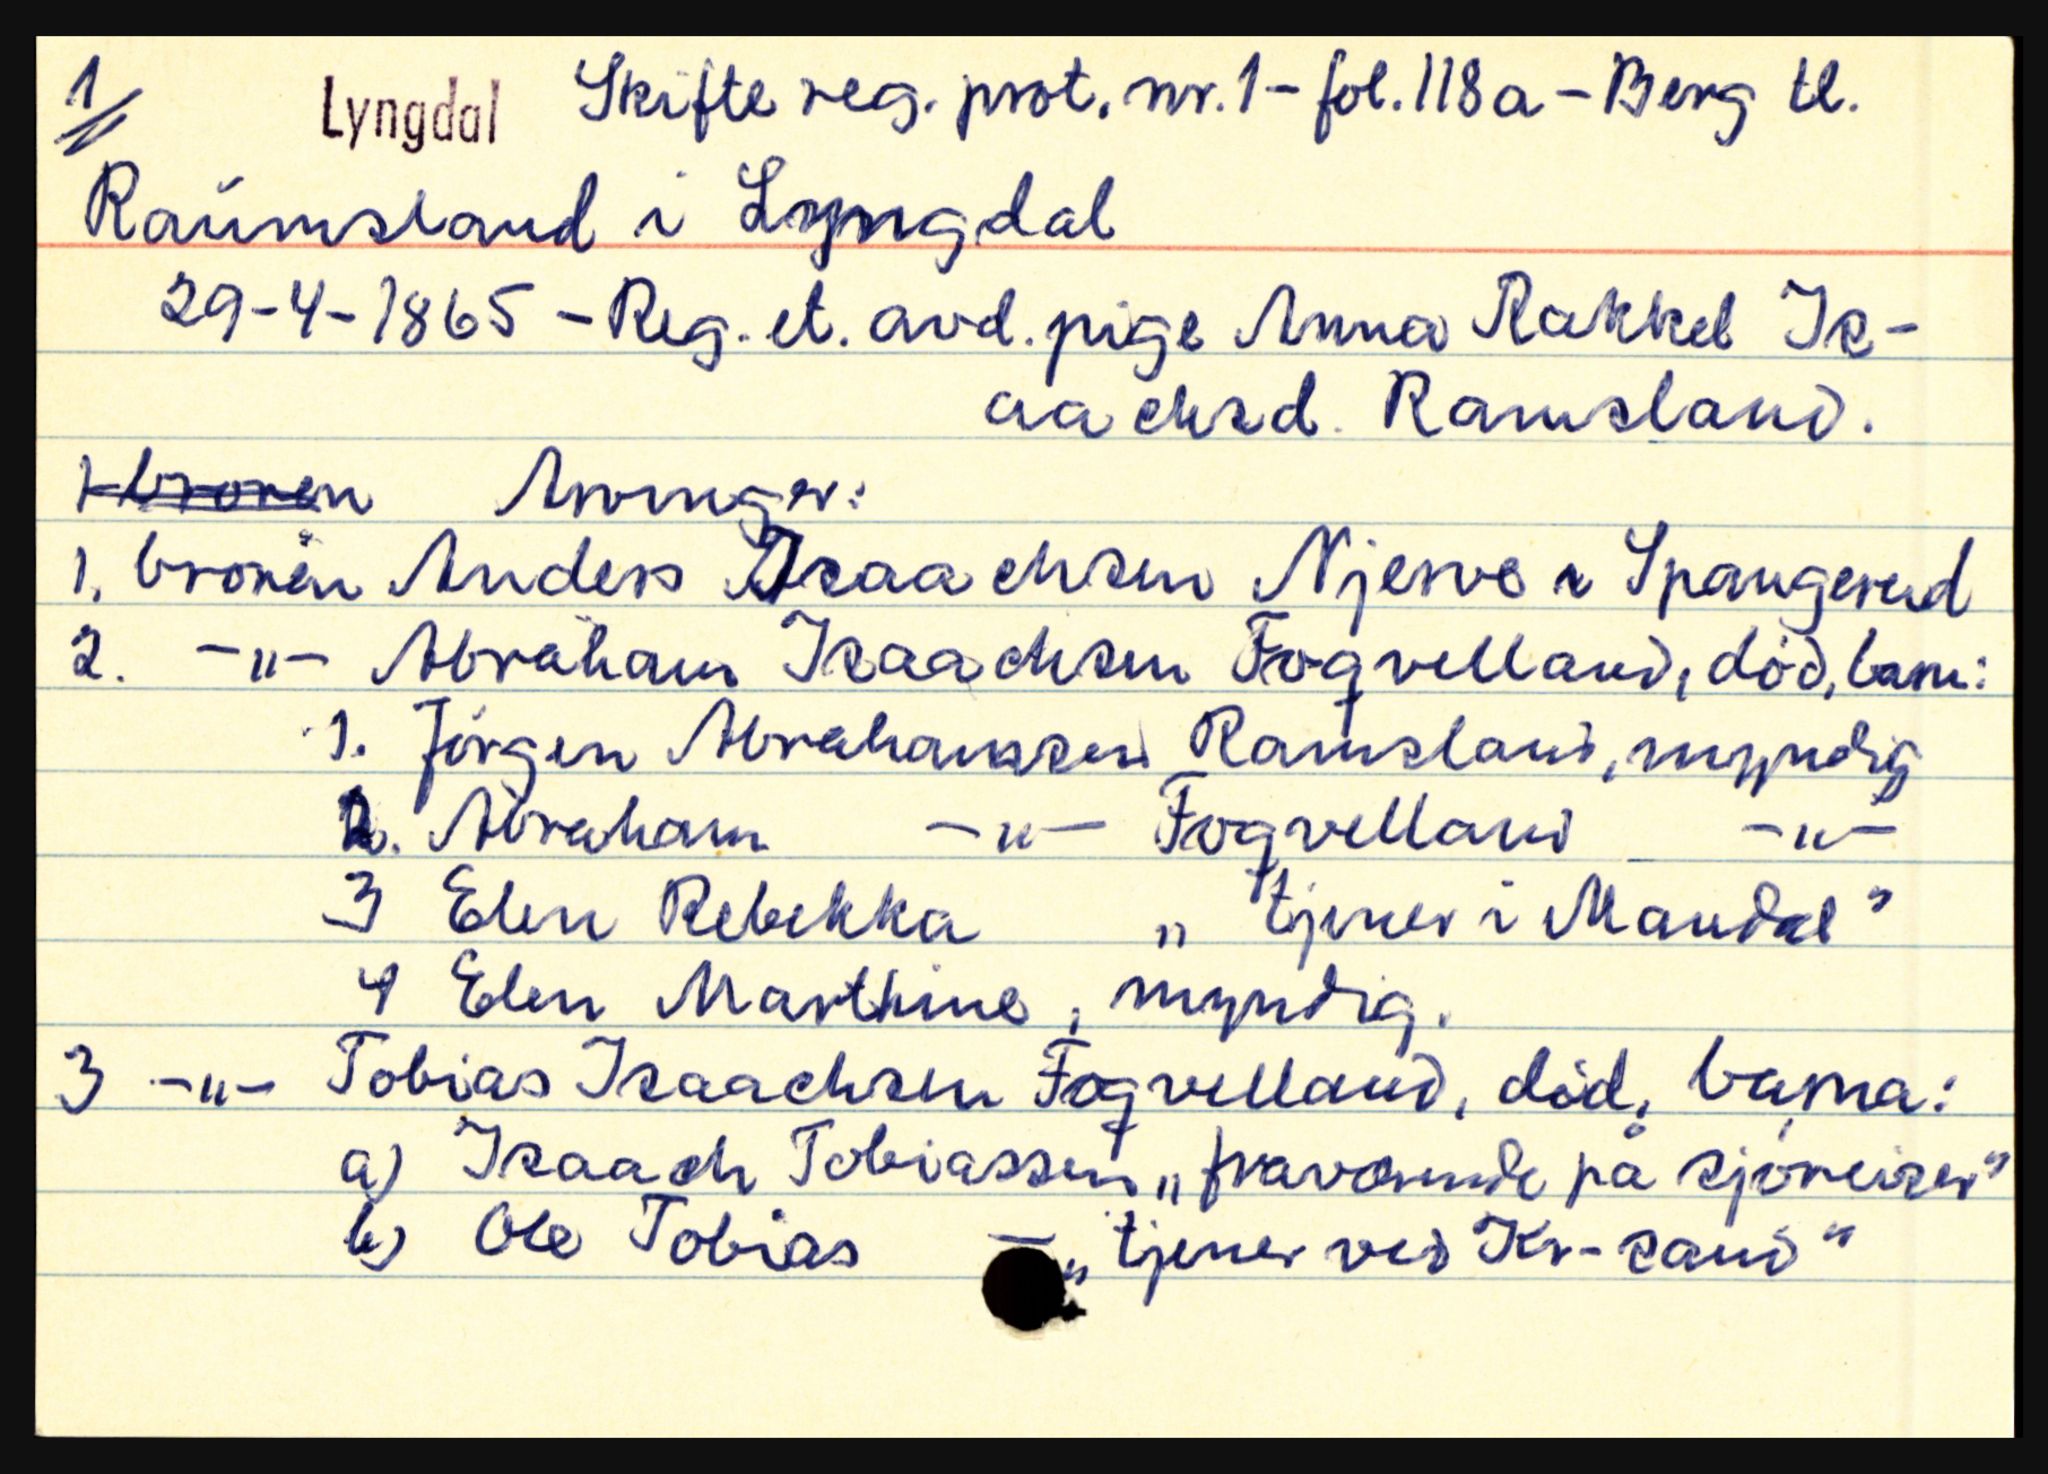 1
Lyngdal Skifte reg. prot. nr. 1 - fol. 118a - Berg tl.
Raumsland i Lyngdal
29-4-1865 - Reg. et. avd. pige Anna Rakkel Is-
aachsd. Ramsland.
1 broren Arvinger:
1. broren Anders Isaachsen Njerve i Spangereid
2. -"- Abraham Isaachsen Foqvelland, död, barn:
1. Jörgen Abrahamsen Ramsland, myndig
2. Abraham -"- Foqvelland -"-
3 Elen Rebekka „ tjener i Mandal"
4 Elen Marthine, myndig.
3 -"- Tobias Isaachsen Foqvelland, död, barna:
a) Isaach Tobiassen „fraværende på sjöreiser"
b) Ole Tobias - „tjener ved Kr-sand"